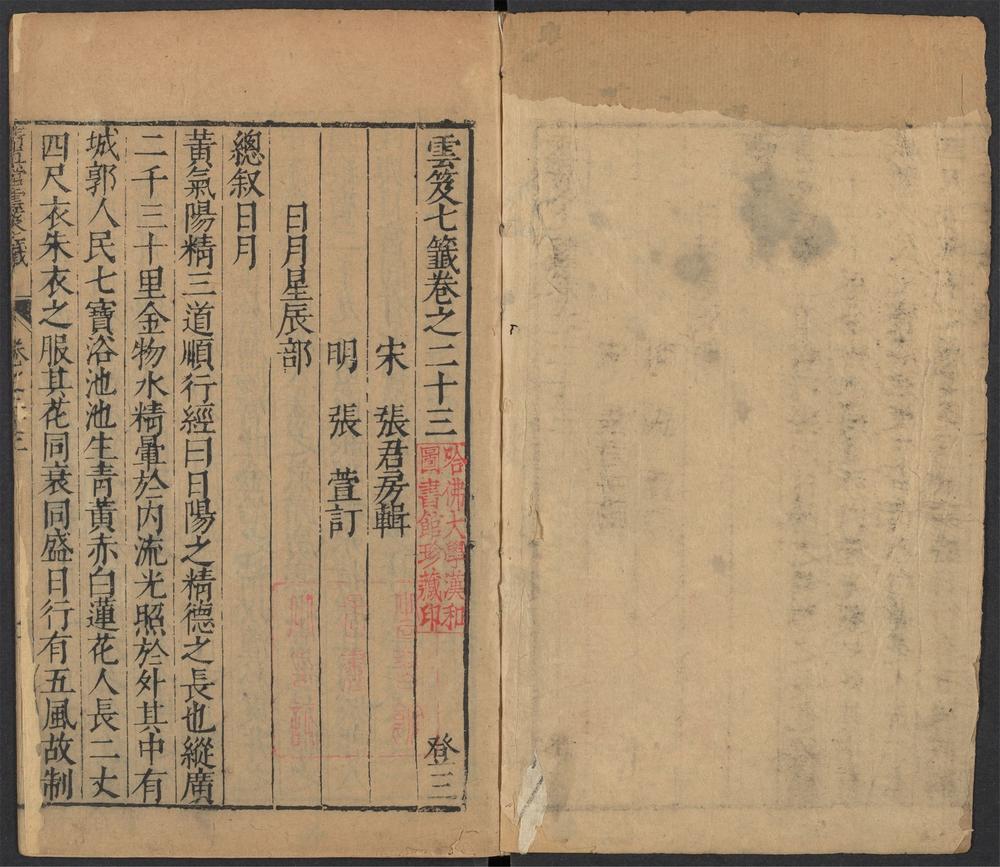 雲笈七籤卷之二十三 登三
宋 張君房輯
明 張萱訂
日月星辰部
總叙日月
黃氣陽精三道順行經曰日陽之精德之長也縱廣
二千三十里金物水精暈於內流光照於外其中有
城郭人民七寶浴池池生青黃赤白蓮花人長二丈
四尺衣朱衣之服其花同衰同盛日行有五風故制
哈佛大學漢和
圖書館珍藏印